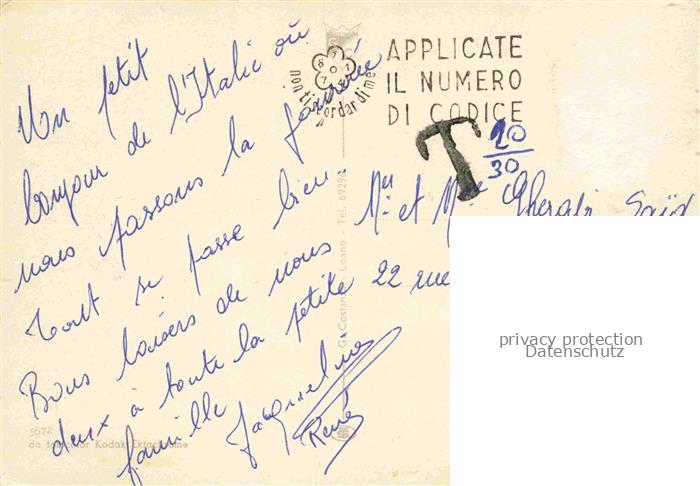 Un petit
bonjour de l'Italie où
nous passons la journée
Tout se passe bien.
Bons baisers de nous
deux à toute la petite
famille
Jacqueline
René
APPLICATE
IL NUMERO
DI CODICE
non ti scordar di me
T 20
30
Mr et Mme Gherabi Saïd
22 rue
Loano - Tel. 69298
5672
Kodak Ektachrome
privacy protection
Datenschutz